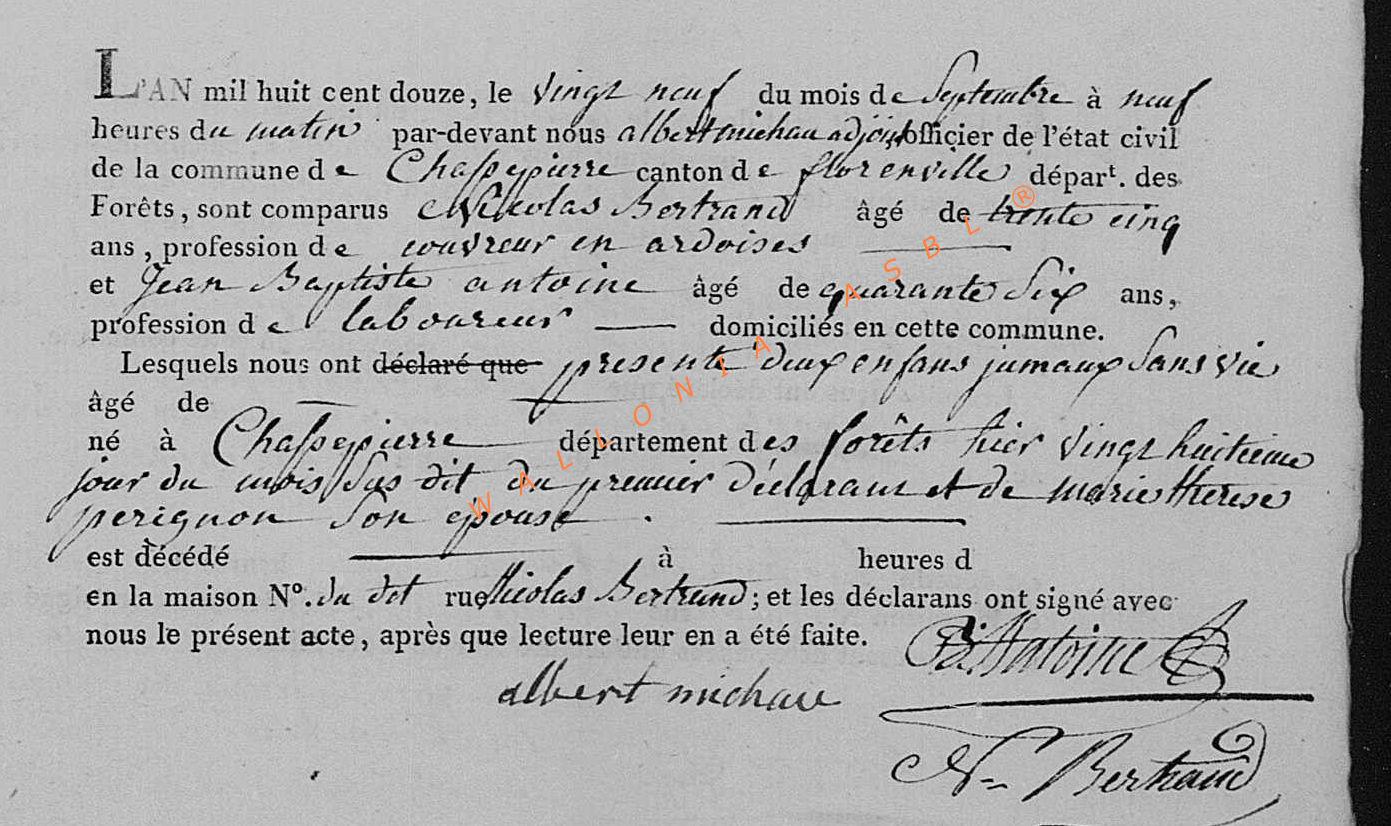 L'AN mil huit cent douze, le vingt neuf du mois de Septembre à neuf
heures du matin par-devant nous albert michau adjoint officier de l'état civil
de la commune de Chassepierre canton de florenville départ. des
Forêts, sont comparus Nicolas Bertrand âgé de trente cinq
ans, profession de couvreur en ardoises
et Jean Baptiste antoine âgé de quarante Six ans,
profession de laboureur domiciliés en cette commune.
Lesquels nous ont déclaré que presenté deux enfans jumaux Sans vie
âgé de
né à Chassepierre département des forêts hier vingt huitieme
jour du mois Sus dit du premier déclarant et de marie therese
perignon Son epouse.
est décédé à heures d
en la maison Nº. du dit rue Nicolas Bertrand; et les déclarans ont signé avec
nous le présent acte, après que lecture leur en a été faite.
Antoine
albert michau
N Bertrand
WALLONIA ASBL ®